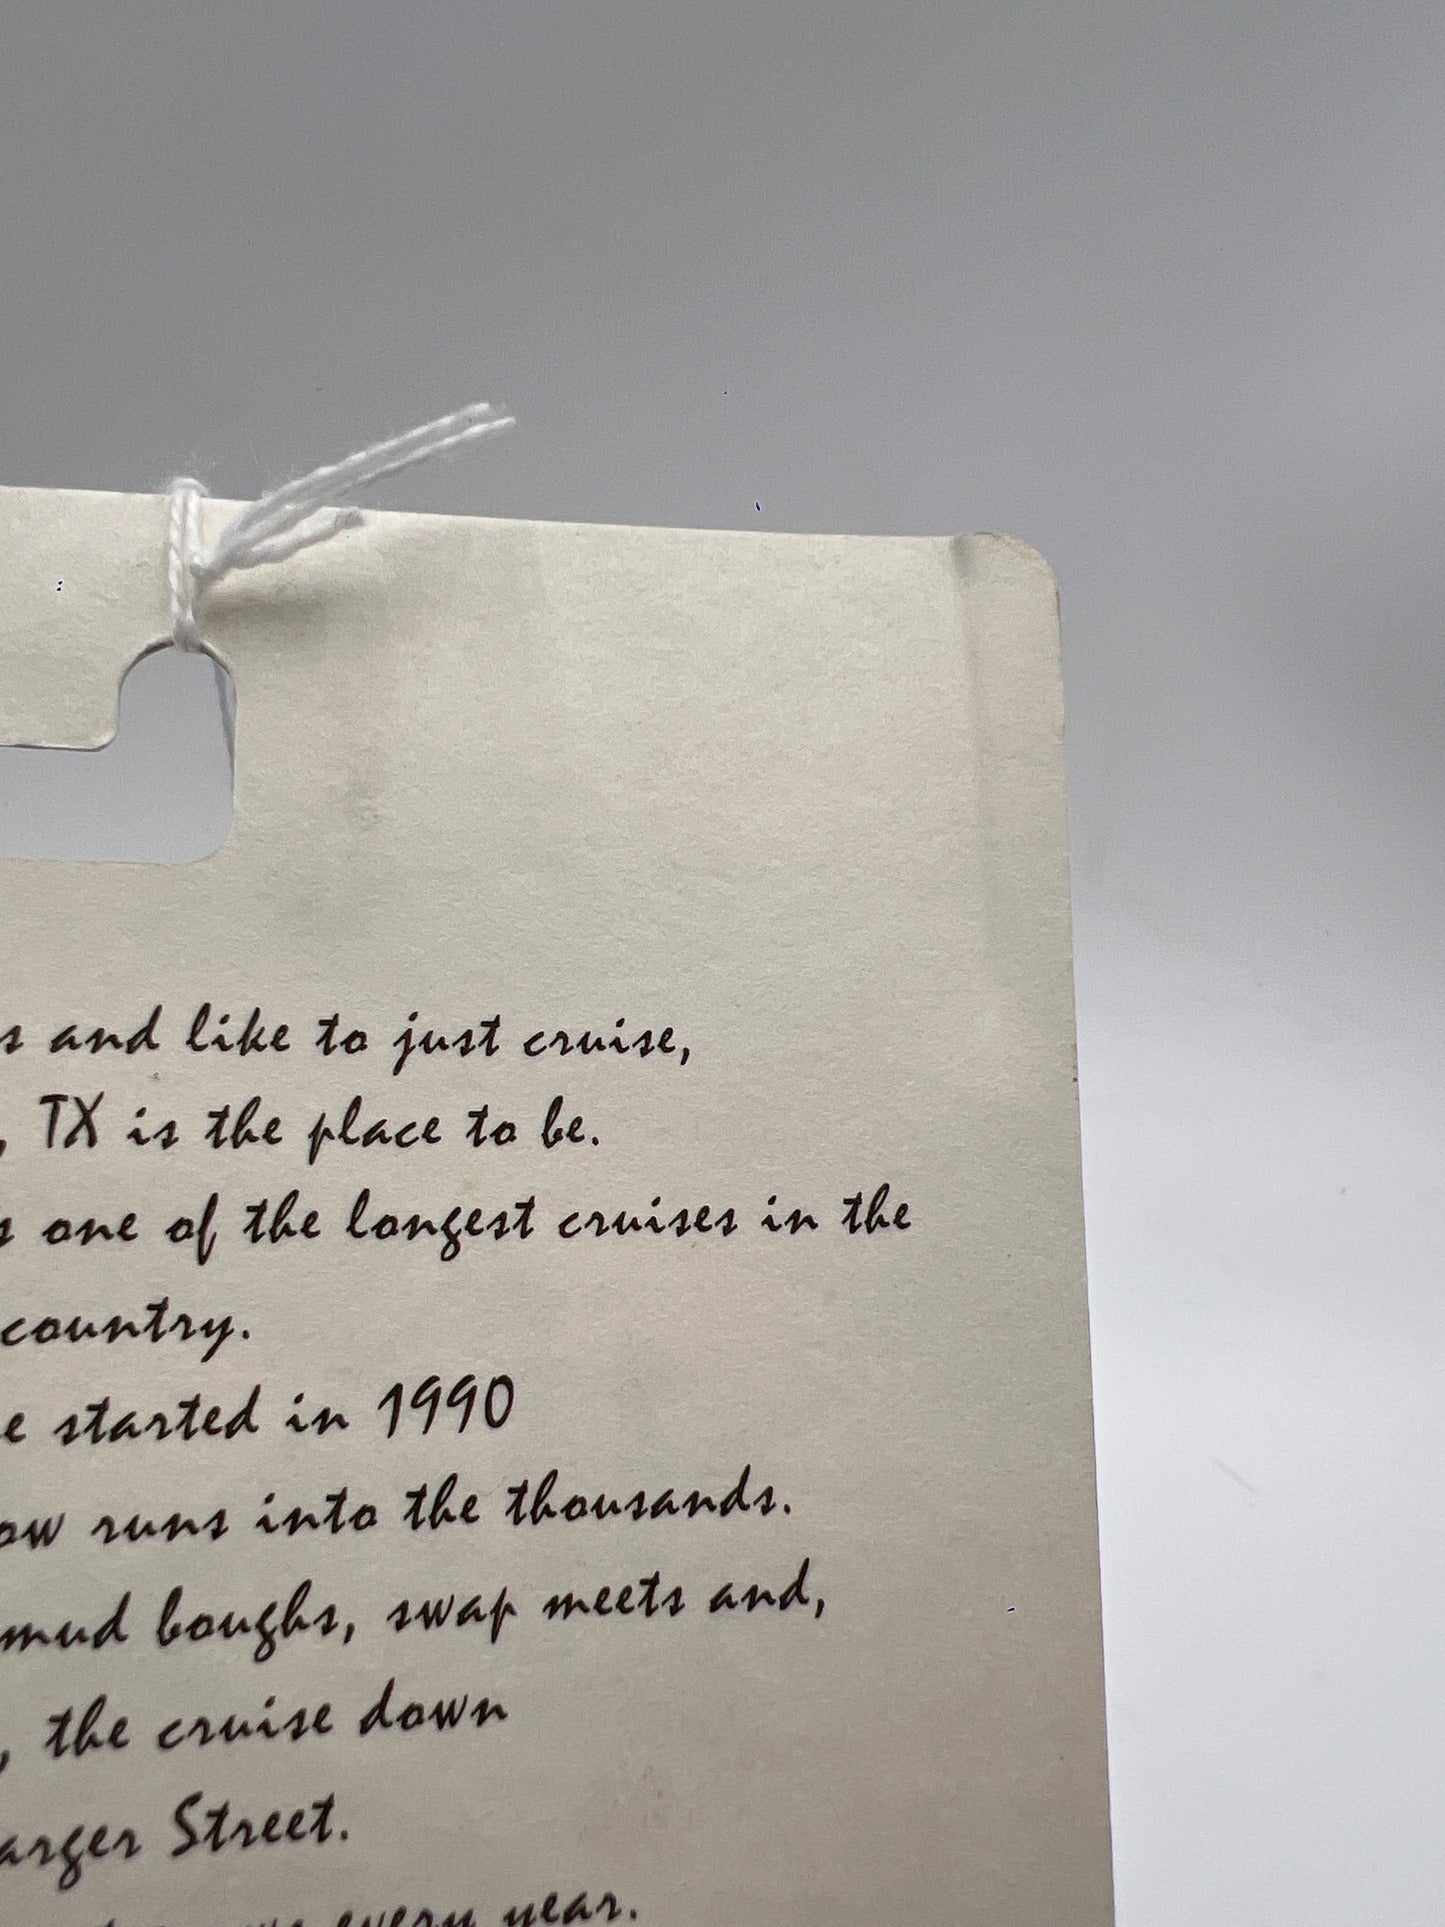 s and like to just cruise,
, TX is the place to be.
s one of the longest cruises in the
country.
e started in 1990
ow runs into the thousands.
mud boughs, swap meets and,
, the cruise down
arger Street.
every year.